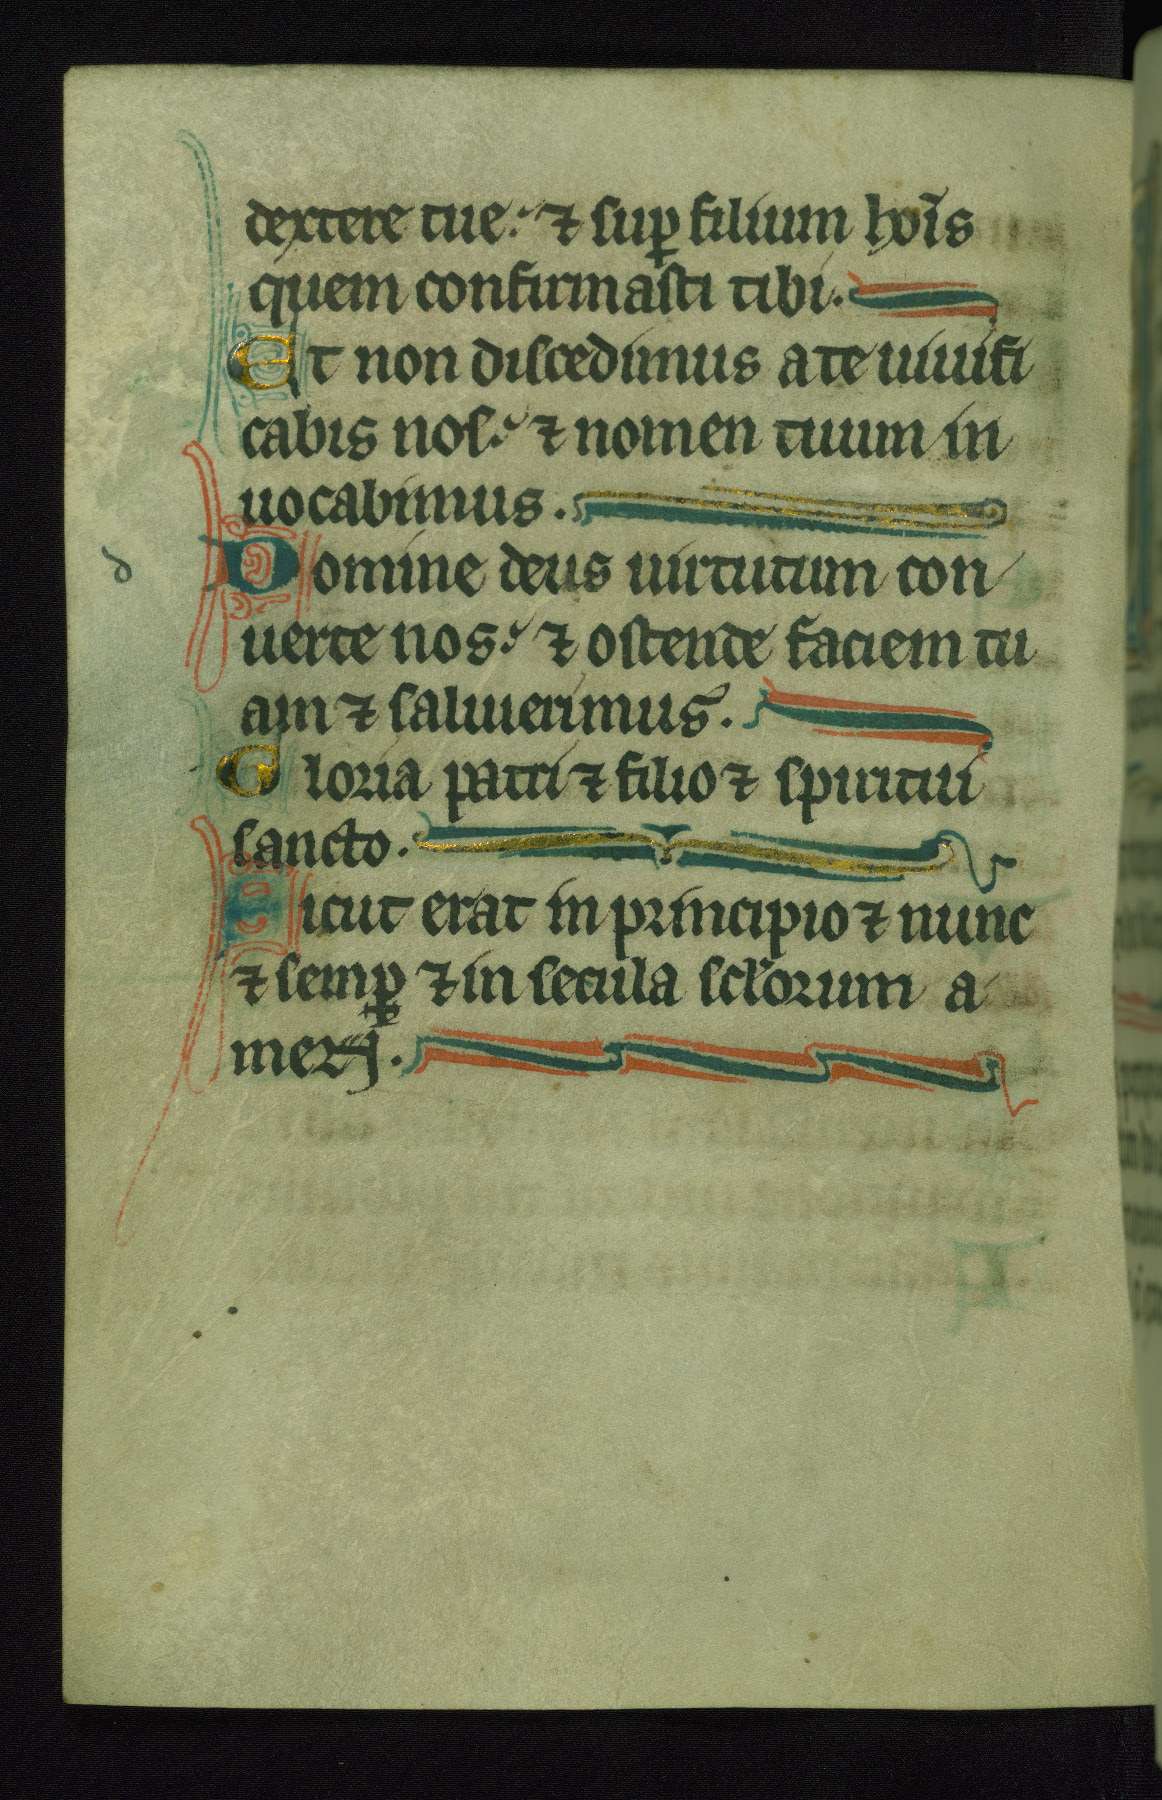 dextere tue. ⁊ sup̱ filium hoı̄s
quem confirmasti tibi.
Et non discedimus a te uiuifi
cabis nos. ⁊ nomen tuum in
uocabimus.
d
Domine deus uirtutum con
uerte nos. ⁊ ostende faciem tu
am ⁊ salui erimus.
Gloria patri ⁊ filio ⁊ spiritui
sancto.
Sicut erat in principio ⁊ nunc
⁊ semp̱ ⁊ in secula sclorum a
men.